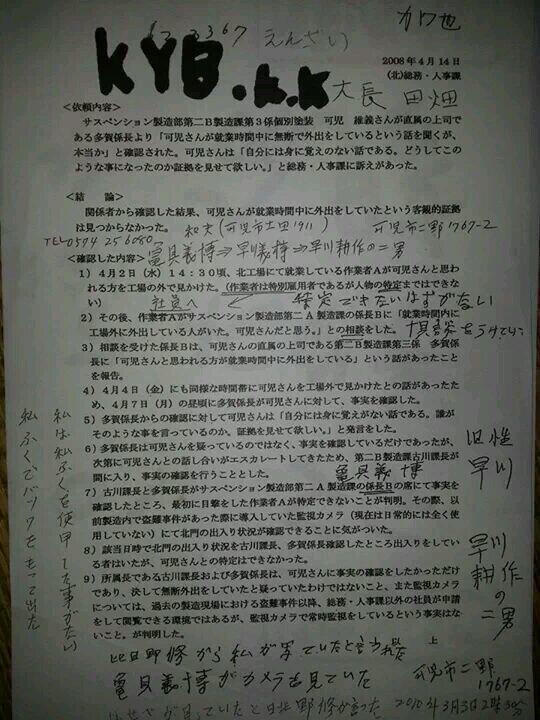 えんざい
KYB.K.K
2008年4月14日
(北)総務・人事課
田畑
＜依頼内容＞
サスペンション製造部第二B製造課第3係個別塗装 可児 維義さんが直属の上司で
ある多賀係長より「可児さんが就業時間中に無断で外出をしているという話を聞くが、
本当か」と確認された。可児さんは「自分には身に覚えのない話である。どうしてこの
ような事になったのか証拠を見せて欲しい。」と総務・人事課に訴えがあった。
＜結 論＞
関係者から確認した結果、可児さんが就業時間中に外出をしていたという客観的証拠
は見つからなかった。
可児市二野1767-2
TEL0574 25 6080
亀貝義博⇒早川義博⇒早川耕作の二男
＜確認した内容＞
1）4月2日（水）14：30頃、北工場にて就業している作業者Aが可児さんと思わ
れる方を工場の外で見かけた。（作業者は特別雇用者であるが人物の特定まではでき
ない）
社員へ
2）その後、作業者Aがサスペンション製造部第二A製造課の係長Bに「就業時間内に
工場外に外出している人がいた。可児さんだと思う。」との相談をした。
3）相談を受けた係長Bは、可児さんの直属の上司である第二B製造課第三係 多賀係
長に「可児さんと思われる方が就業時間中に外出をしている」という話があったこと
を報告。
4）4月4日（金）にも同様な時間帯に可児さんを工場外で見かけたとの話があったた
め、4月7日（月）の昼頃に多賀係長が可児さんに対して、事実を確認した。
5）多賀係長からの確認に対して可児さんは「自分には身に覚えがない話である。誰が
そのような事を言っているのか。証拠を見せて欲しい。」と発言をした。
6）多賀係長は可児さんを疑っているのではなく、事実を確認しているだけであったが、
次第に可児さんとの話し合いがエスカレートしてきたため、第二B製造課古川課長が
間に入り、事実の確認を行うこととした。
亀貝義博
7）古川課長と多賀係長がサスペンション製造部第二A製造課の係長Bの席にて事実を
確認したところ、最初に目撃をした作業者Aが特定できないことが判明。その際、以
前製造内で盗難事件があった際に導入していた監視カメラ（現在は日常的には全く使
用していない）にて北門の出入り状況が確認できることに気がついた。
8）該当日時で北門の出入り状況を古川課長、多賀係長確認したところ出入りをしてい
る者はいたが、可児さんとの特定はできなかった。
9）所属長である古川課長および多賀係長は、可児さんに事実の確認をしたかっただけ
であり、決して無断外出をしていたと疑っていたわけではないこと、また監視カメラ
については、過去の製造現場における盗難事件以降、総務・人事課以外の社員が申請
をして閲覧できる環境ではあるが、監視カメラで常時監視をしているという事実はな
いこと。が判明した。
上
旧性
早川
早川
耕作の
二男
可児市二野
1767-2
私は私ふくを使用した事がない
私ふくでバックをもって出た
亀貝義博がカメラを見ていた